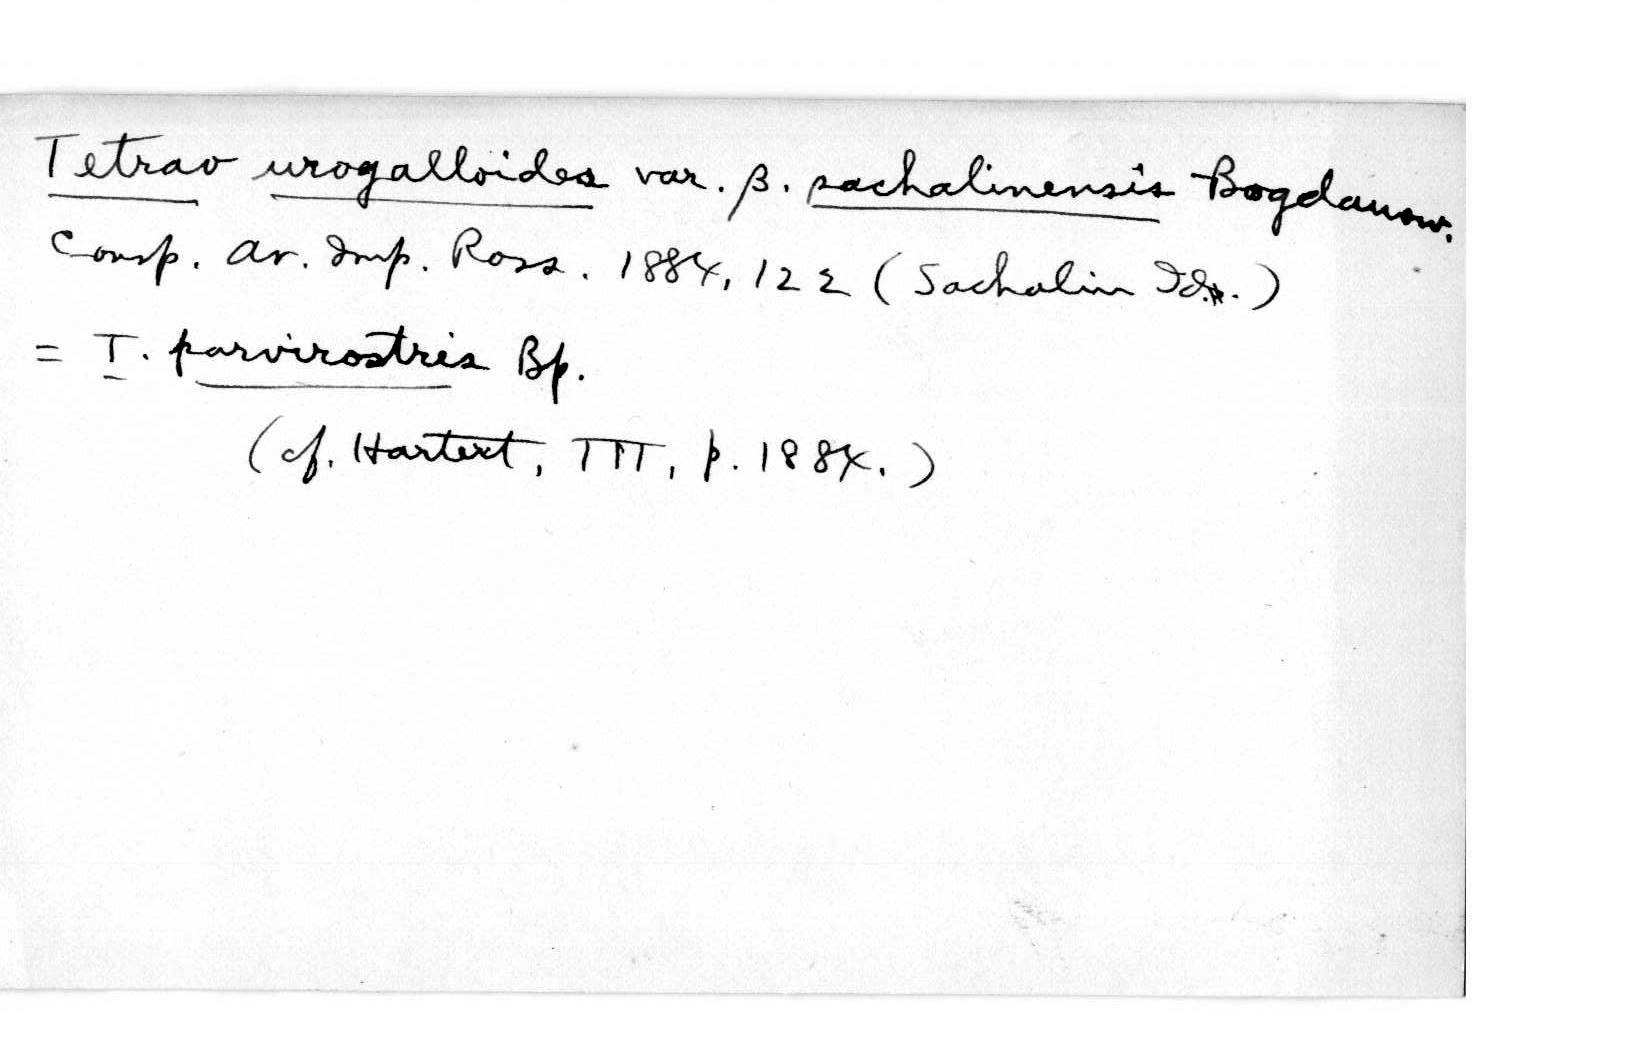 Tetrao urogalloides var. β. sachalinensis Bogdanow.
Consp. Av. Imp. Ross. 1884, 122 (Sachalin Ids.)
= T. parvirostris Bp.
(cf. Hartert, III, p. 1884.)